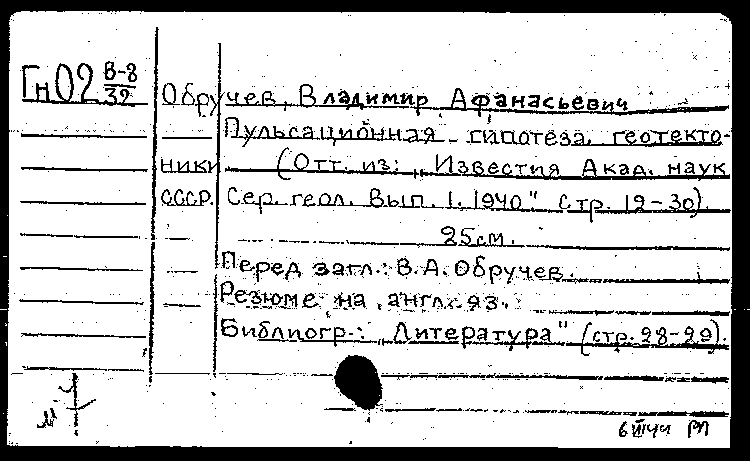 Гн02 В-8/32
Обручев, Владимир Афанасьевич
Пульсационная гипотеза геотекто-
ники (Отт. из: „Известия Акад. наук
СССР. Сер. геол. Вып. 1. 1940" стр. 12-30).
25см.
Перед загл.: В.А. Обручев.
Резюме на англ. яз.
Библиогр.: „Литература" (стр. 28-29).